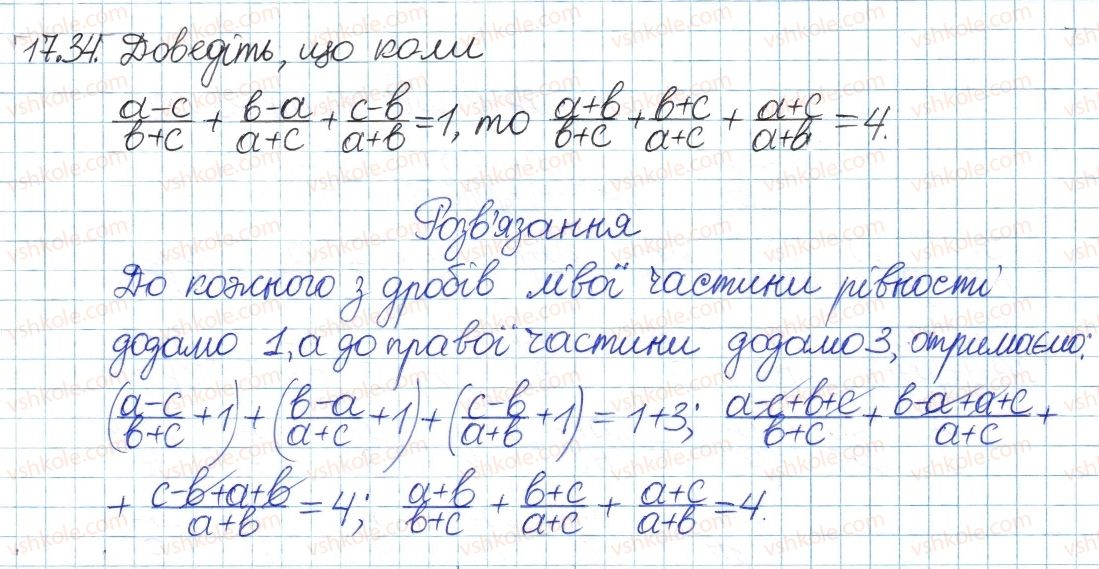 17.34. Доведіть, що коли
(a-c)/(b+c) + (b-a)/(a+c) + (c-b)/(a+b) = 1, то (a+b)/(b+c) + (b+c)/(a+c) + (a+c)/(a+b) = 4.
Розв'язання
До кожного з дробів лівої частини рівності
додамо 1, а до правої частини додамо 3, отримаємо:
((a-c)/(b+c) + 1) + ((b-a)/(a+c) + 1) + ((c-b)/(a+b) + 1) = 1+3; (a-c+b+c)/(b+c) + (b-a+a+c)/(a+c) +
+ (c-b+a+b)/(a+b) = 4; (a+b)/(b+c) + (b+c)/(a+c) + (a+c)/(a+b) = 4.
vshkole.com